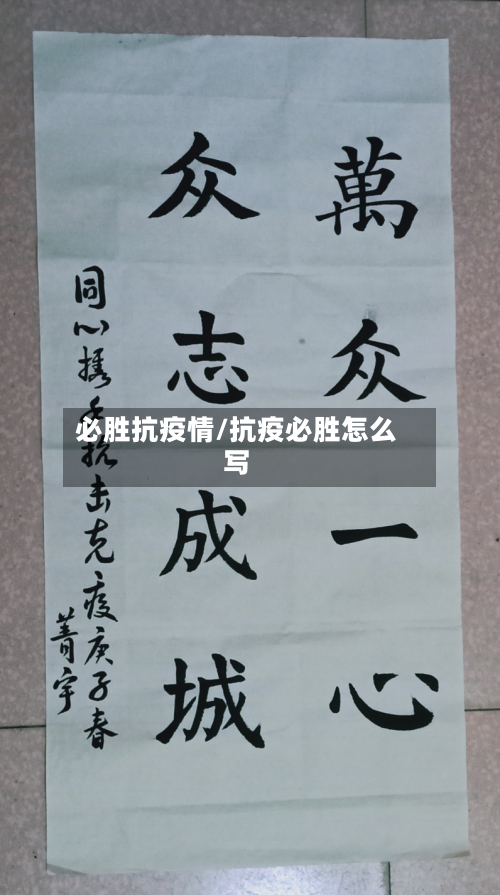 萬众一心
众志成城
同心携手抗击克疫庚子春
菁宇
必胜抗疫情/抗疫必胜怎么
写